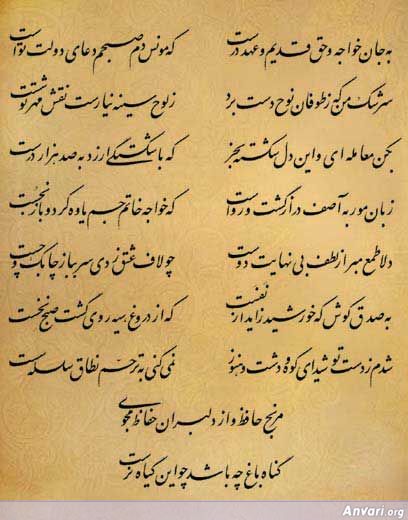 به جان خواجه و حق قدیم و عهد درست که مونس دم صبحم دعای دولت توست
سرشک من که ز طوفان نوح دست برد ز لوح سینه نیارست نقش مهر تو شست
بکن معامله ای و این دل شکسته بخر که با شکستگی ارزد به صد هزار درست
زبان مور به آصف دراز گشت و رواست که خواجه خاتم جم یاوه کرد و باز نجست
دلا طمع مبر از لطف بی نهایت دوست چو لاف عشق زدی سر بباز چابک و چست
به صدق کوش که خورشید زاید از نفست که از دروغ سیه روی گشت صبح نخست
شدم ز دست تو شیدای کوه و دشت و هنوز نمی کنی به ترحم نطاق سلسله سست
مرنج حافظ و از دلبران حفاظ مجوی
گناه باغ چه باشد چو این گیاه نرست
Anvari.org